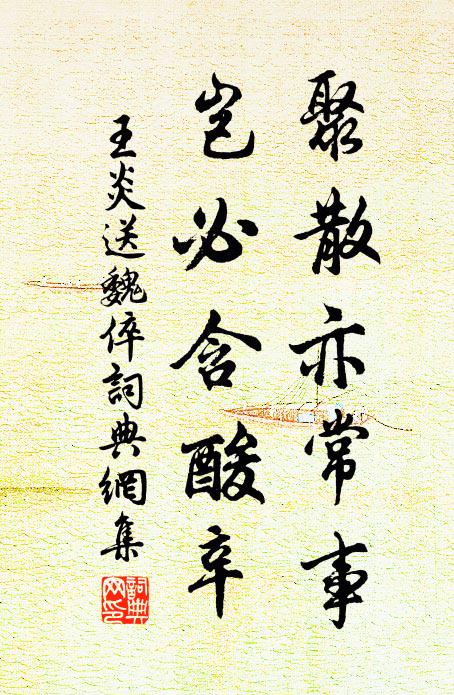 聚散亦常事
豈必含酸辛
王炎送魏倅詞典網集
詞典網印